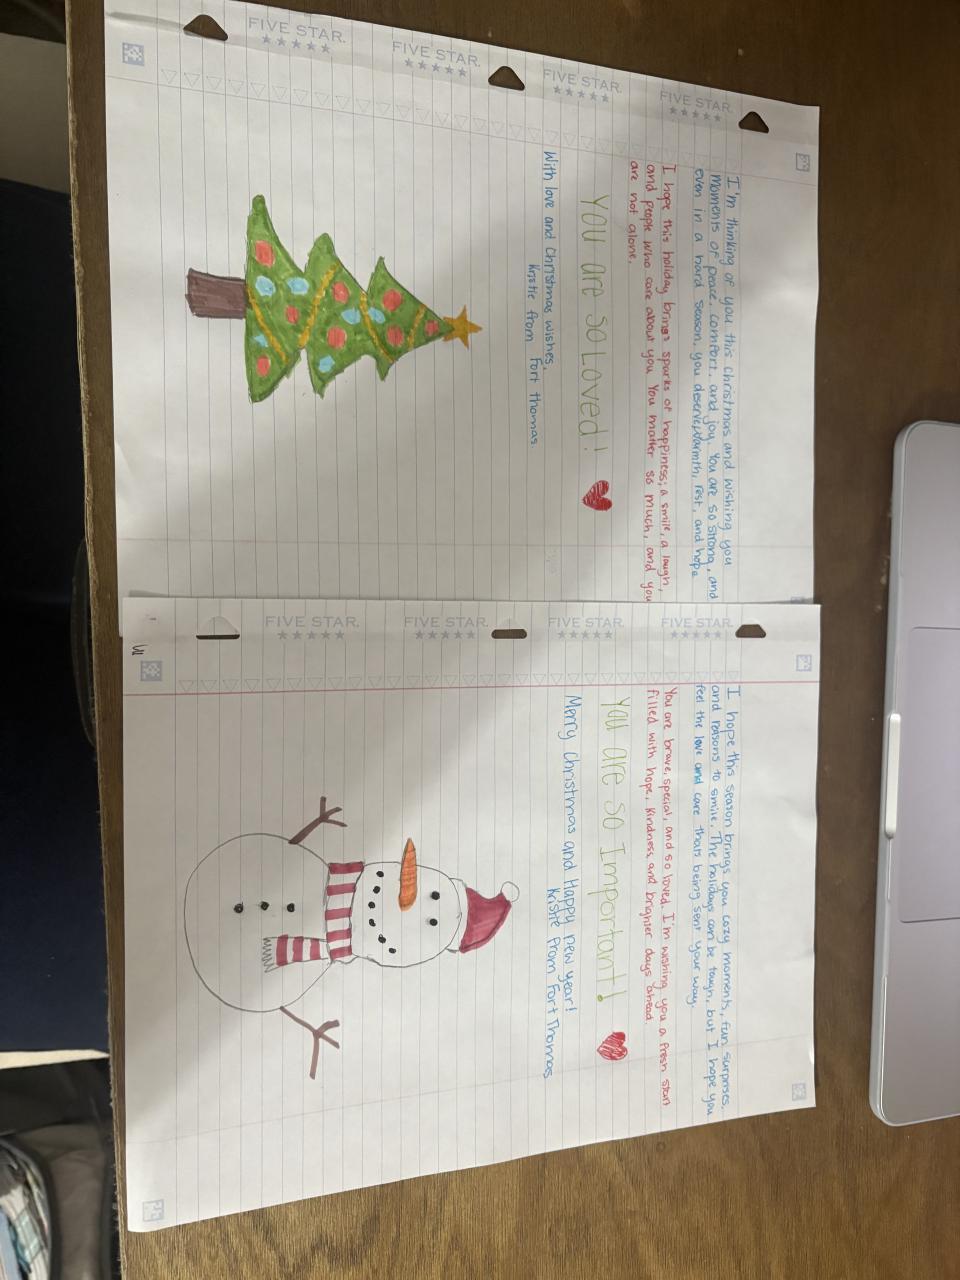 I'm thinking of you this christmas and wishing you
moments of peace, comfort, and joy. You are so strong, and
even in a hard season, you deserve warmth, rest, and hope
I hope this holiday brings sparks of happiness; a smile, a laugh,
and people who care about you You matter so much, and you
are not alone.
YOU are so Loved!
With love and Christmas wishes,
Kristie from Fort thomas
FIVE STAR.
FIVE STAR.
FIVE STAR.
FIVE STAR.
I hope this season brings you cozy moments, fun surprises,
and reasons to smile. The holidays can be tough, but I hope you
feel the love and care thats being sent your way.
You are brave, special, and so loved. I'm wishing you a fresh start
filled with hope, kindness, and brighter days ahead.
YOU are so Important!
Merry Christmas and Happy new year!
Kristie from Fort Thomas
FIVE STAR.
FIVE STAR.
FIVE STAR.
FIVE STAR.